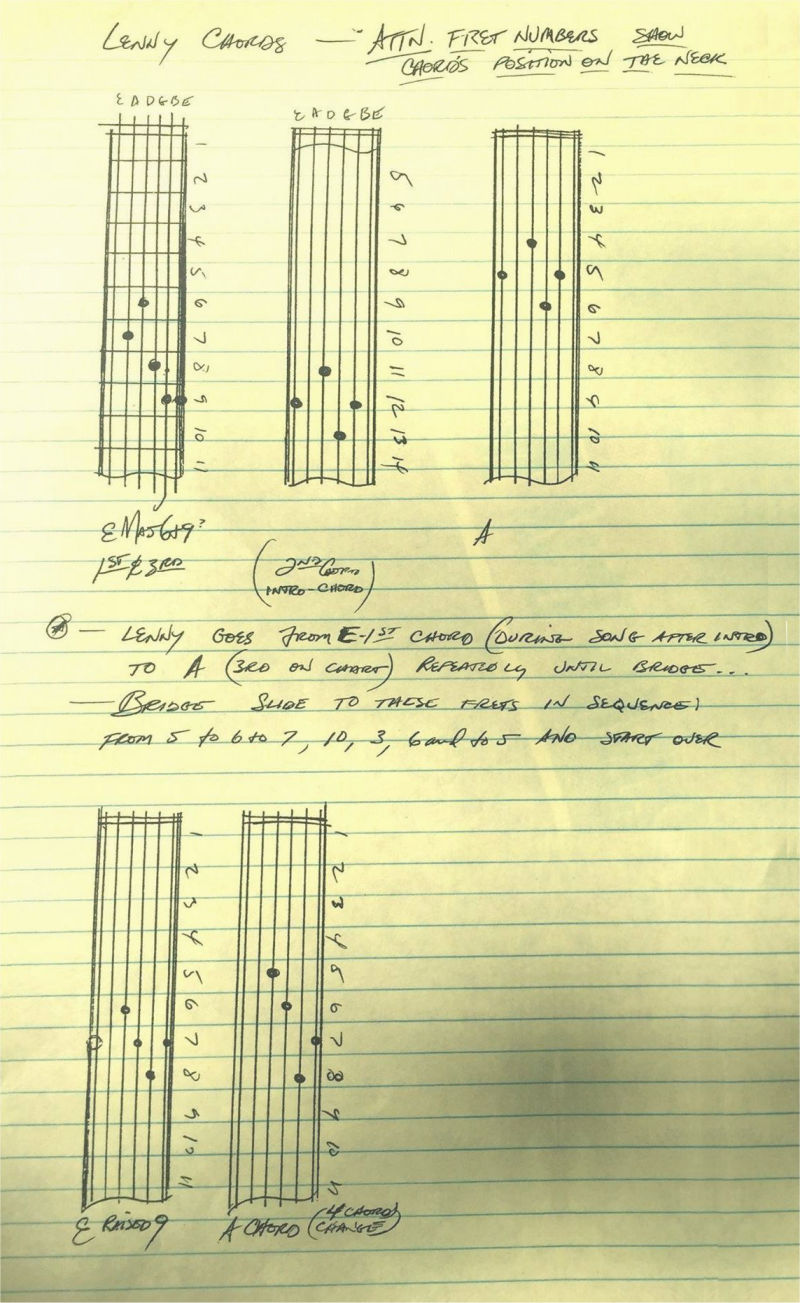 LENNY CHORDS — ATTN. FRET NUMBERS SHOW
CHORDS POSITION ON THE NECK
E A D G B E
1
2
3
4
5
6
7
8
9
10
11
E MAJ 6+9?
1ST & 3RD
E A D G B E
5
6
7
8
9
10
11
12
13
14
(2ND CHORD
INTRO-CHORD)
1
2
3
4
5
6
7
8
9
10
11
A
— LENNY GOES FROM E-1ST CHORD (DURING SONG AFTER INTRO)
TO A (3RD ON CHART) REPEATEDLY UNTIL BRIDGE...
— BRIDGE SLIDE TO THESE FRETS IN SEQUENCE:
FROM 5 to 6 to 7, 10, 3, 6 and to 5 AND START OVER
1
2
3
4
5
6
7
8
9
10
11
E RAISED 9
1
2
3
4
5
6
7
8
9
10
11
A CHORD (4 CHORD
CHANGE)